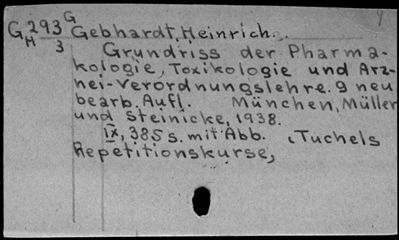 G 293 G Gebhardt, Heinrich.
H 3 Grundriss der Pharma-
kologie, Toxikologie und Arz-
nei-Verordnungslehre. 9 neu
bearb. Aufl. München, Müller
und Steinicke, 1938.
IX, 385 s. mit Abb. (Tuchels
Repetitionskurse,